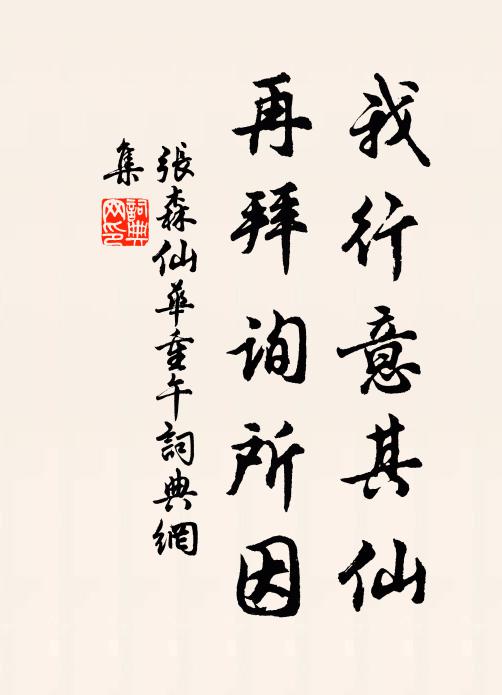 我行意其仙
再拜詢所因
張森仙華重午詞典網
集
詞典
网印